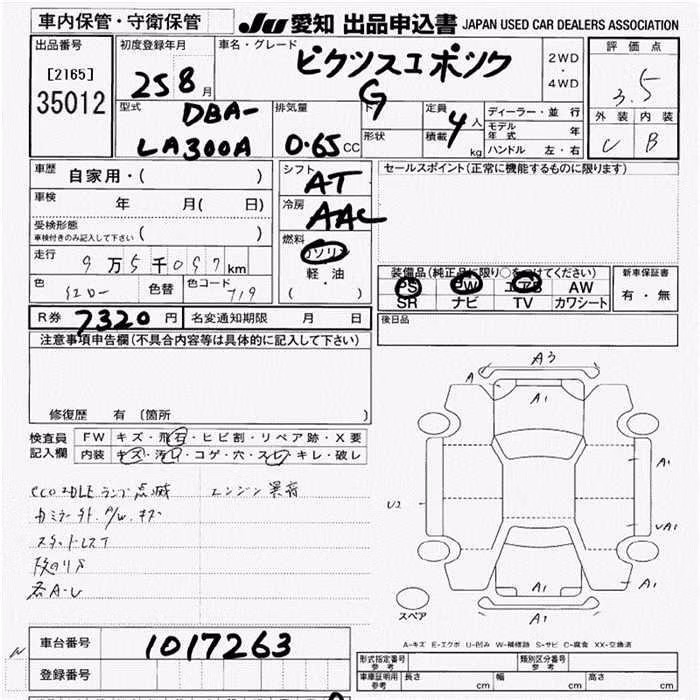 車内保管・守衛保管
JU 愛知 出品申込書 JAPAN USED CAR DEALERS ASSOCIATION
出品番号
[2165]
35012
初度登録年月
25 8 月
車名・グレード
ピクシスエポック
G
2WD
・
4WD
評価点
3.5
外装 内装
C B
型式
DBA-
LA300A
排気量
0.65 CC
ド
形状
定員
積載
4 人
kg
ディーラー・並行
モデル
年式 年
ハンドル 左・右
車歴
自家用・( )
車検
年 月( 日)
受検形態
車検付きのみ記入して下さい ( )
走行
9万5千097 km
色
色替
色コード
719
シフト
AT
冷房
AAC
燃料
ガソリン
軽・油
( )
セールスポイント(正常に機能するものに限ります)
装備品(純正品に限り○をつけてください)
PS PW エアB AW
SR ナビ TV カワシート
新車保証書
有・無
後日品
R券 7320 円
名変通知期限 月 日
注意事項申告欄(不具合内容等は具体的に記入して下さい)
修復歴 有(箇所 )
検査員
記入欄
FW キズ・飛石・ヒビ割・リペア跡・X要
内装 キズ・汚れ・コゲ・穴・スレ・キレ・破レ
eco IDLE ランプ点滅 エンジン異音
スタッドレス
各A-U
A3
A
A1
A1
U2
UA1
A1
A1
A1
スペア
A-キズ E-エクボ U-凹み W-補修跡 S-サビ C-腐食 XX-交換済
車台番号
1017263
登録番号
形式指定番号
参考
類別区分番号
参考
車庫証明用
参考
長さ cm
幅 cm
高さ cm